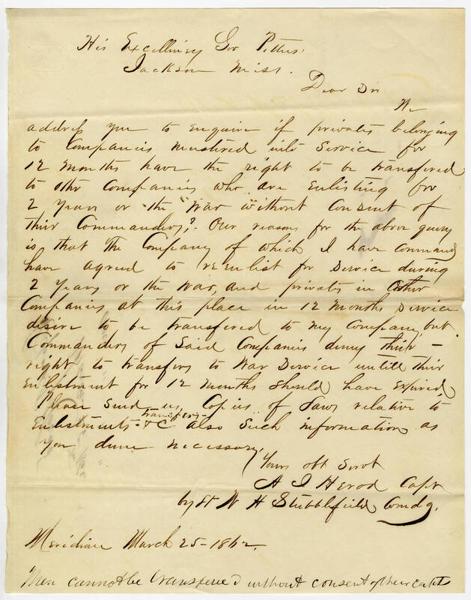 His Excellency Gov Pettus
Jackson Miss.
Dear Sir
We
address you to enquire if privates belonging
to Companies mustered into Service for
12 Months have the right to be transfered
to other Companies who are Enlisting for
2 Years or "the War" without Consent of
their Commanders? Our reasons for the above query
is, that the Company of which I have Command
have agreed to reenlist for Service during
2 Years or the War, and privates in Other
Companies at this place in 12 Months Service
desire to be transfered to my Company, but
Commanders of Said Companies deny their
right to transfers to War Service untill their
Enlistment for 12 Months should have Expired
Please send us Copies of Laws relative to
Enlistments transfers &C also Such information as
you deem necessary
Yours obt Servt
A J Herod Capt
by Lt W H Stubblefield Comdg.
Meridian March 25-1862.
Men cannot be transfered without consent of their capts